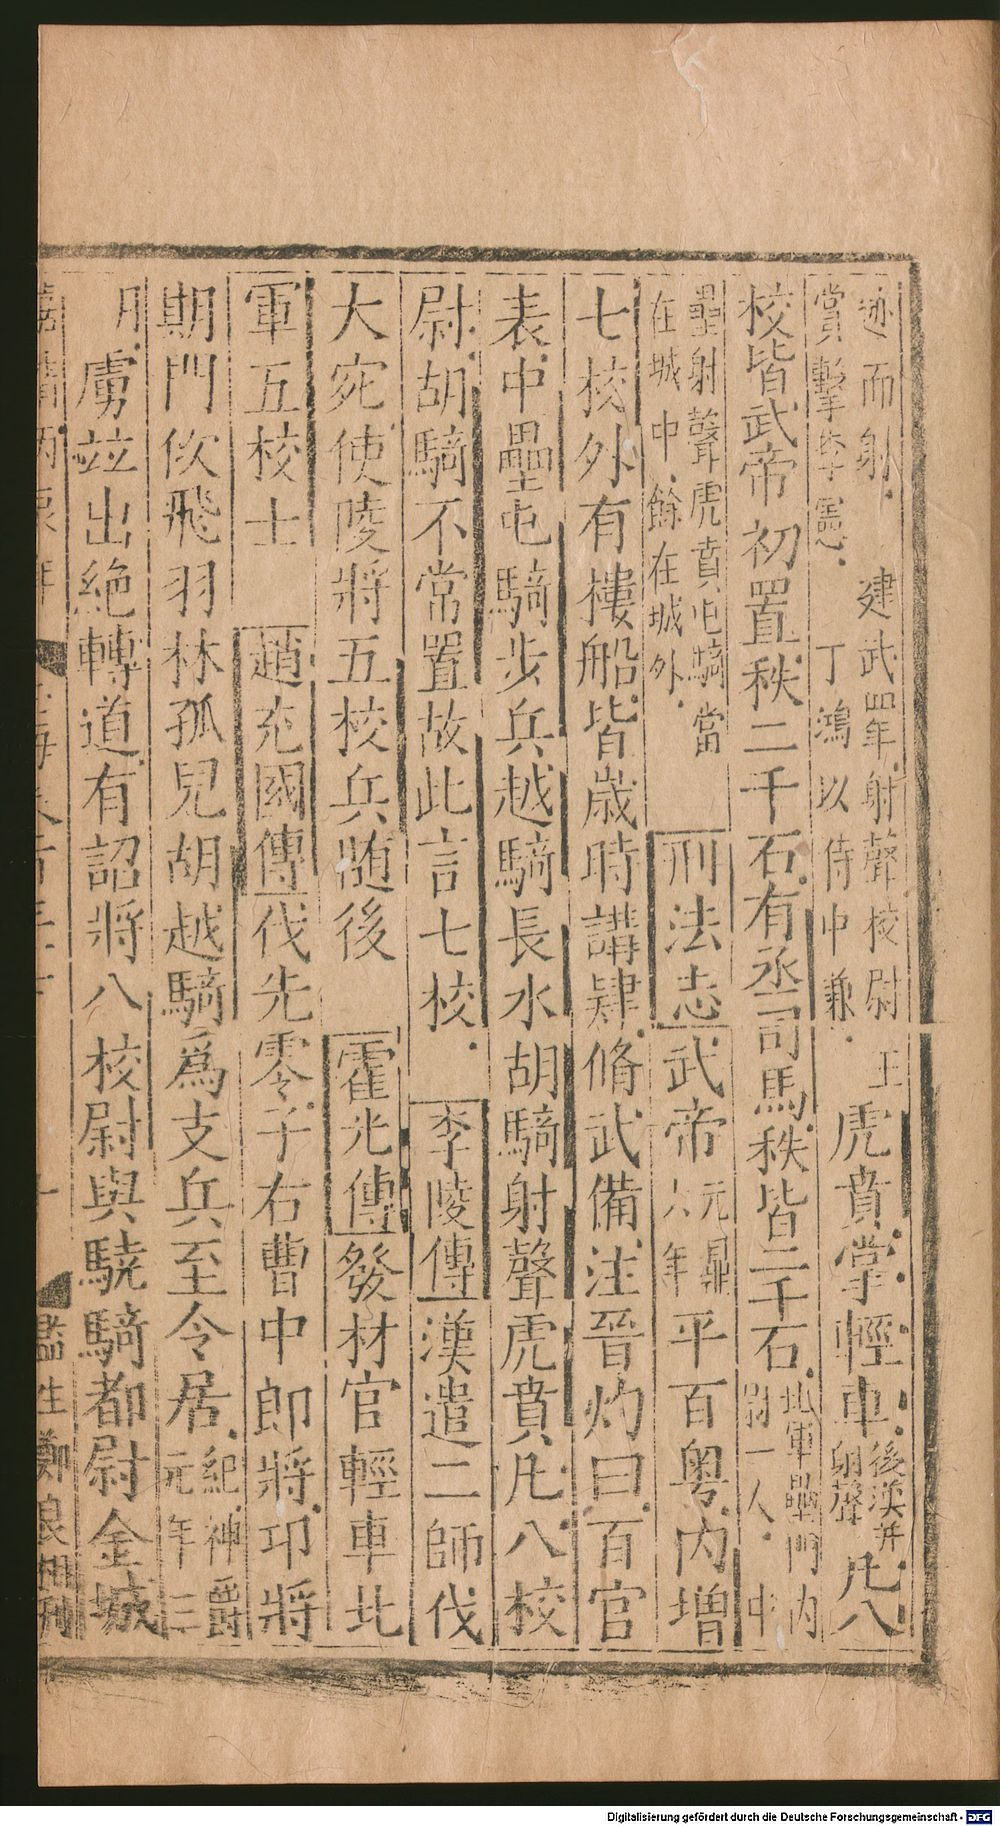 迹而射 建武四年射聲校尉王
賞擊李憲 丁鴻以侍中兼
虎賁掌輕車
後漢并
射聲
凡八
校皆武帝初置秩二千石有丞司馬秩皆二千石
北軍壘門内
尉一人中
壘射聲虎賁屯騎當
在城中餘在城外
刑法志武帝
元鼎
六年
平百粤内增
七校外有樓船皆歲時講肄脩武備注晉灼曰百官
表中壘屯騎步兵越騎長水胡騎射聲虎賁凡八校
尉胡騎不常置故此言七校 李陵傳漢遣二師伐
大宛使陵將五校兵随後 霍光傳發材官輕車北
軍五校士 趙充國傳伐先零子右曹中郎將卬將
期門佽飛羽林孤兒胡越騎爲支兵至令居
紀神爵
元年三
月
虜竝出絶轉道有詔將八校尉與驍騎都尉金城
監生鄭良相刊
Digitalisierung gefördert durch die Deutsche Forschungsgemeinschaft - DFG